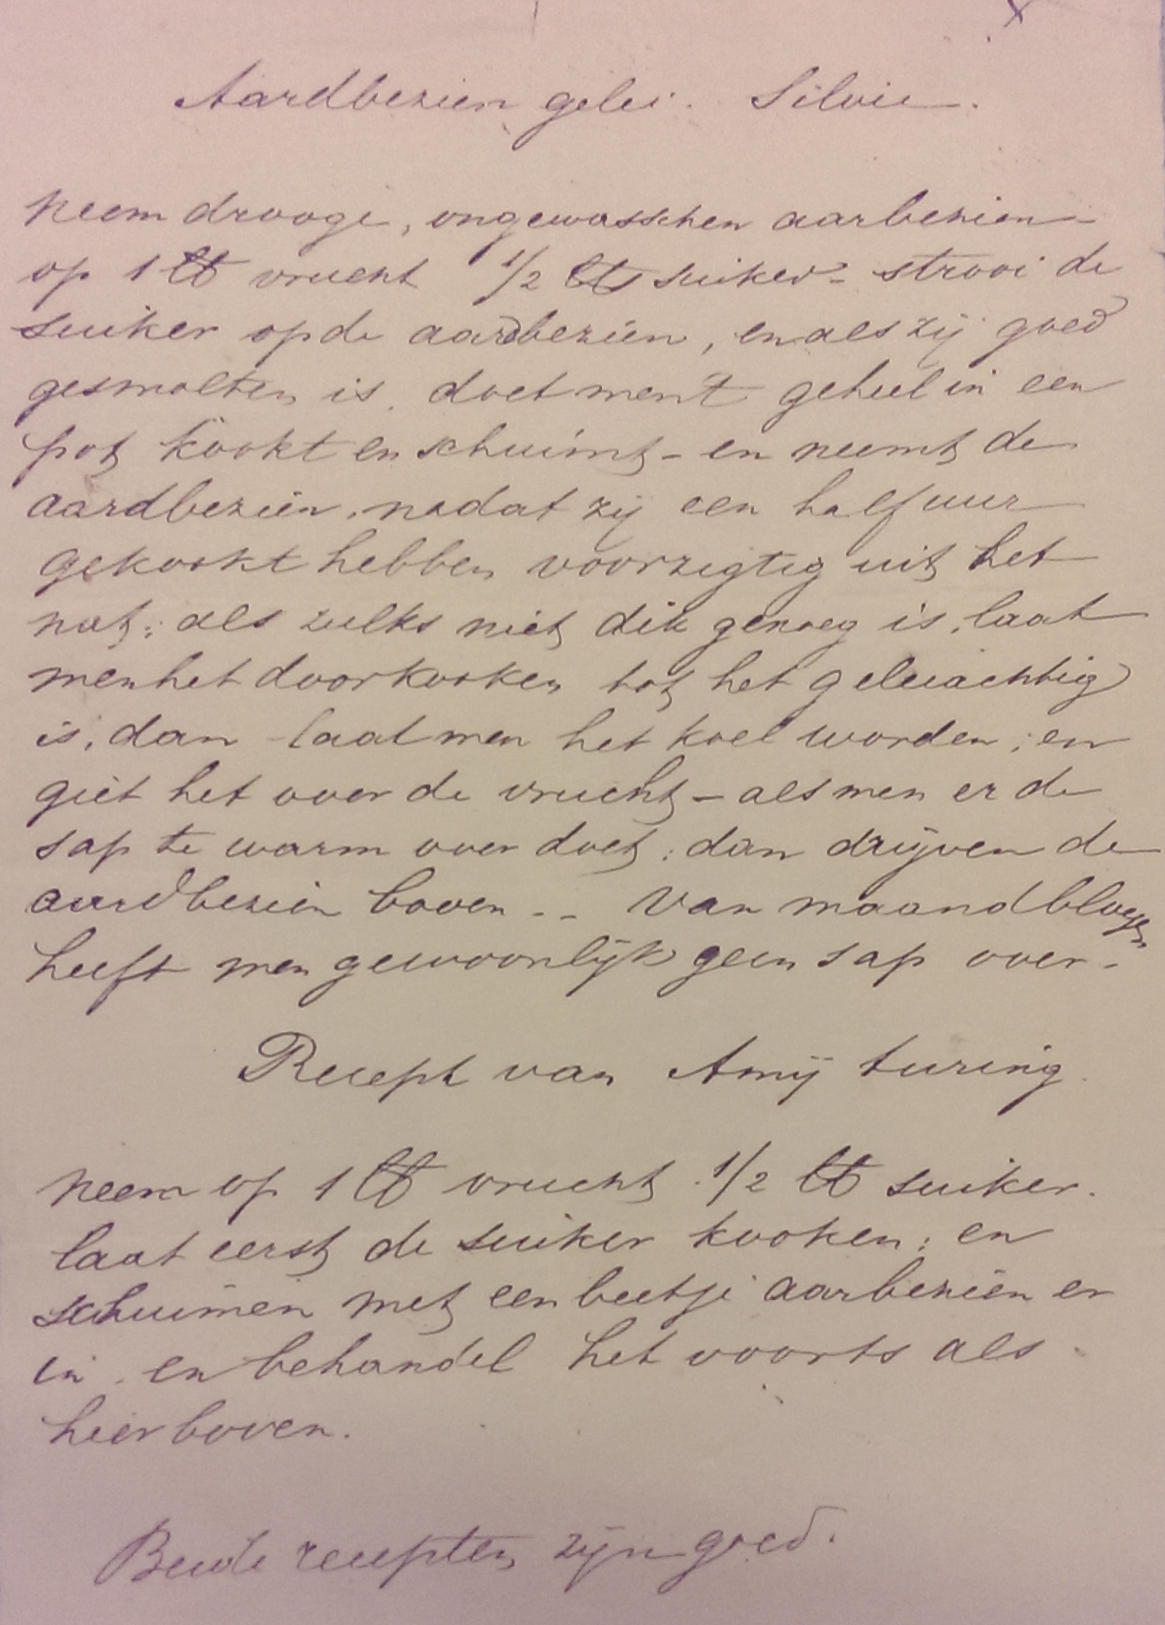 Aardbezien gelei. Silvie.
Neem drooge, ongewasschen aarbezien -
op 1 ℔ vrucht 1/2 ℔ suiker - strooi de
suiker op de aardbeziën, en als zij goed
gesmolten is. doet men 't geheel in een
pot kookt en schuimt - en neemt de
aardbeziën, nadat zij een half uur
gekookt hebben voorzigtig uit het
nat; als zulks niet dik genoeg is, laat
men het doorkooken tot het geleiachtig
is, dan laat men het koel worden; en
giet het over de vrucht - als men er de
sap te warm over doet; dan drijven de
aardbeziën boven -- Van maandbloeyers
heeft men gewoonlijk geen sap over -
Recept van Amij turing
Neem op 1 ℔ vrucht 1/2 ℔ suiker.
laat eerst de suiker kooken; en
schuimen met een beetje aarbeziën er
in. en behandel het voorts als
hier boven.
Beide recepten zijn goed.